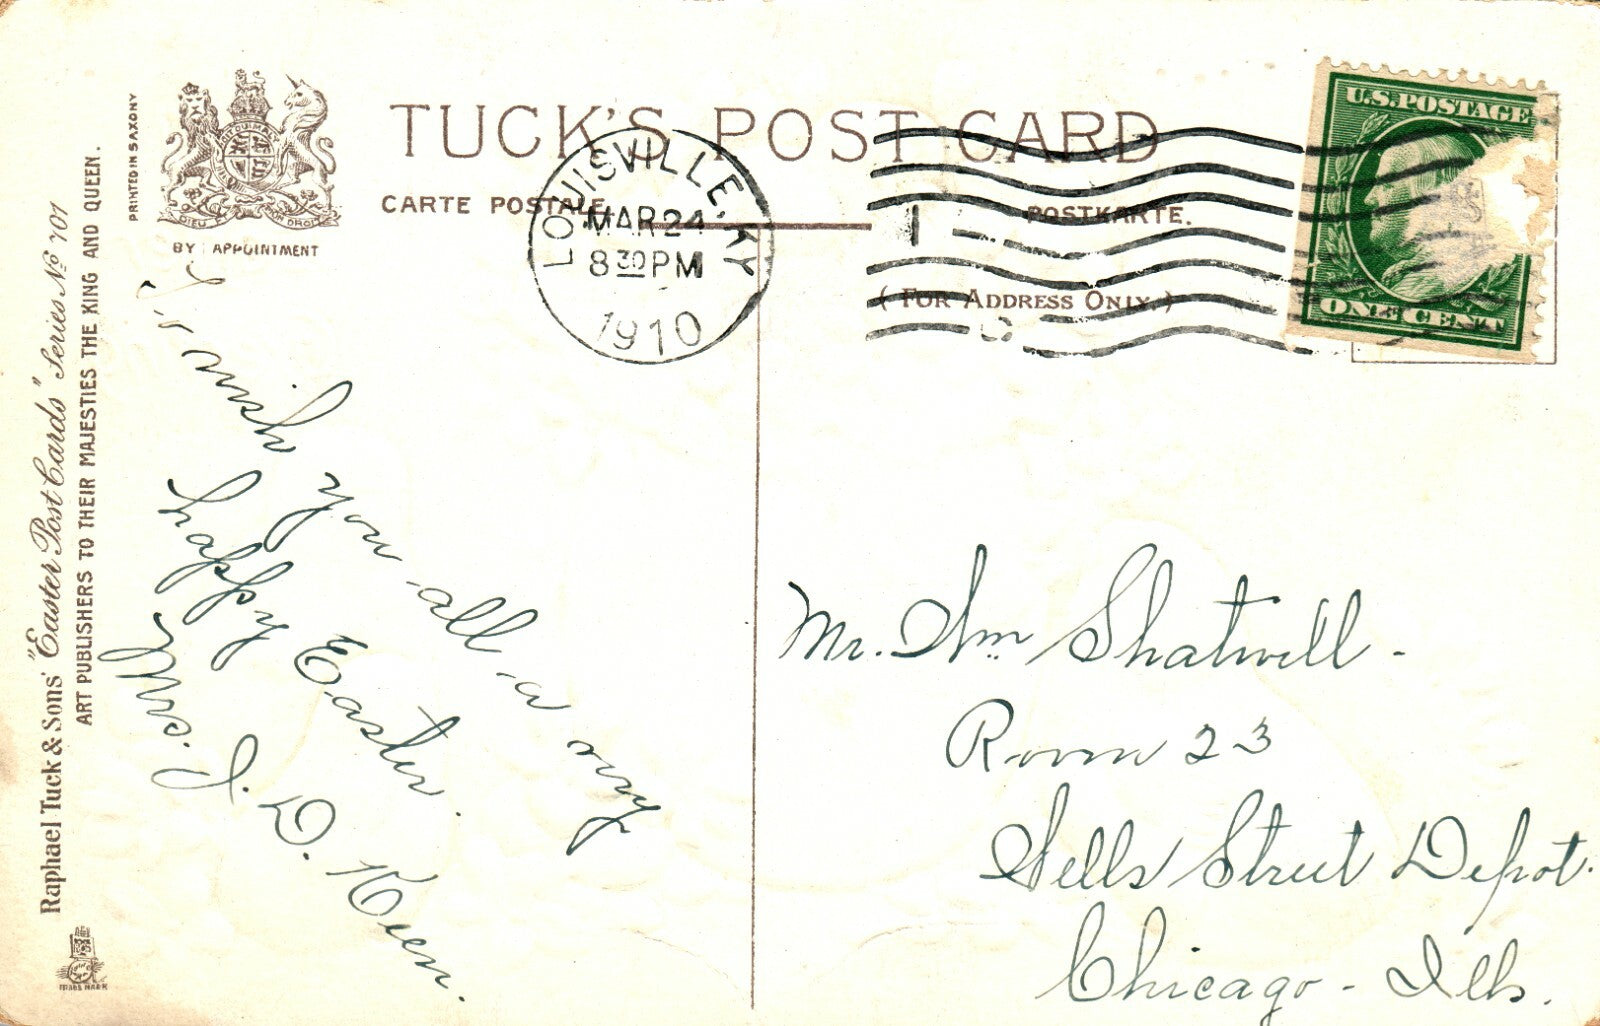 TUCK'S POST CARD
CARTE POSTALE.
POSTKARTE.
( FOR ADDRESS ONLY.)
PRINTED IN SAXONY
DIEU ET MON DROIT
BY APPOINTMENT
Raphael Tuck & Sons' "Easter Post Cards" Series No 701
ART PUBLISHERS TO THEIR MAJESTIES THE KING AND QUEEN.
TRADE MARK
LOUISVILLE, KY
MAR 24
8 30 PM
1910
U.S. POSTAGE
ONE CENT
I wish you all a very
happy Easter.
Mrs. J. D. Keen.
Mr. Wm Shatwell -
Room 23
Wells Street Depot.
Chicago - Ills.